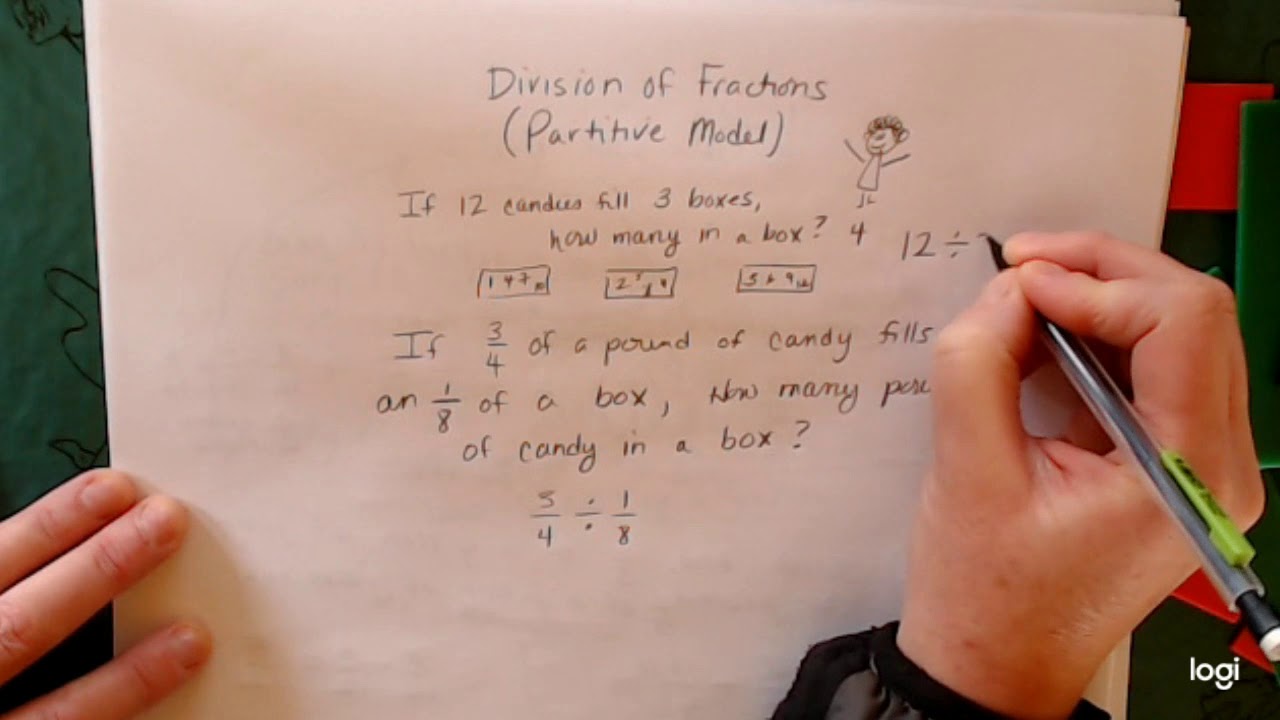 Division of Fractions
(Partitive Model)
If 12 candies fill 3 boxes,
how many in a box? 4 12 ÷
1 4 7 10
If 3/4 of a pound of candy fills
an 1/8 of a box, How many
of candy in a box?
3/4 ÷ 1/8
logi